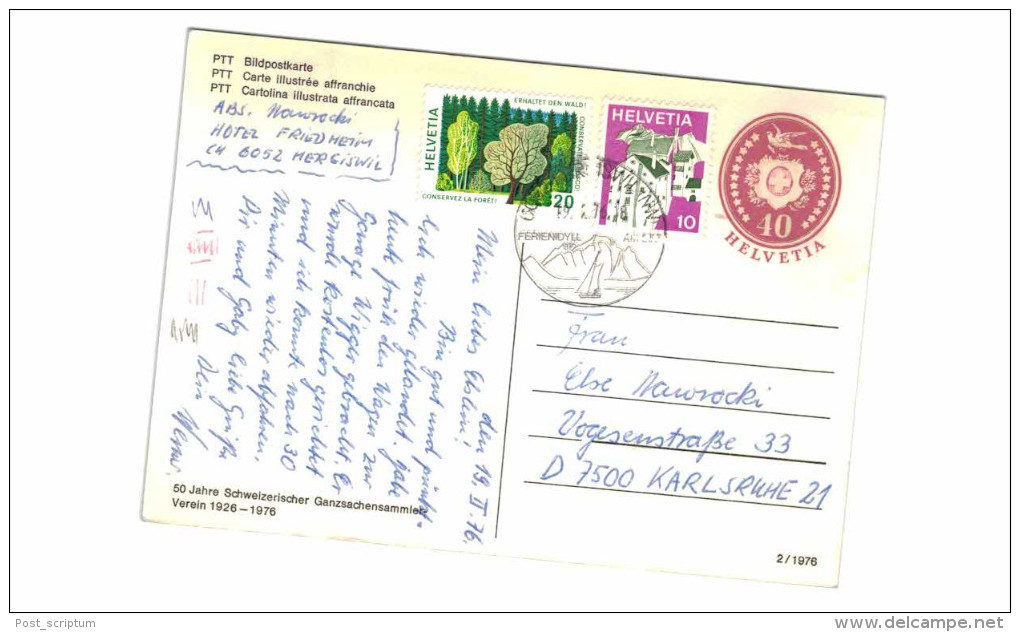 PTT Bildpostkarte
PTT Carte illustrée affranchie
PTT Cartolina illustrata affrancata
ABS. Nawrocki
HOTEL FRIEDHEIM
CH 6052 HERGISWIL
HELVETIA
ERHALTET DEN WALD!
CONSERVEZ LA FORÊT!
20
HELVETIA
10
40
HELVETIA
FERIENIDYLL AM
den 19. II. 76.
Mein liebes Elslein!
Bin gut und pünkt-
lich wieder gelandet, habe
heute früh den Wagen zur
Garage Wigger gebracht. Er
wurde kostenlos gerichtet
und ich konnte nach 30
Minuten wieder abfahren.
Dir und Gaby liebe Grüße
Dein Werner.
Frau
Else Nawrocki
Vogesenstraße 33
D 7500 KARLSRUHE 21
50 Jahre Schweizerischer Ganzsachensammler-
Verein 1926–1976
2/1976
Post_scriptum
delcampe.net